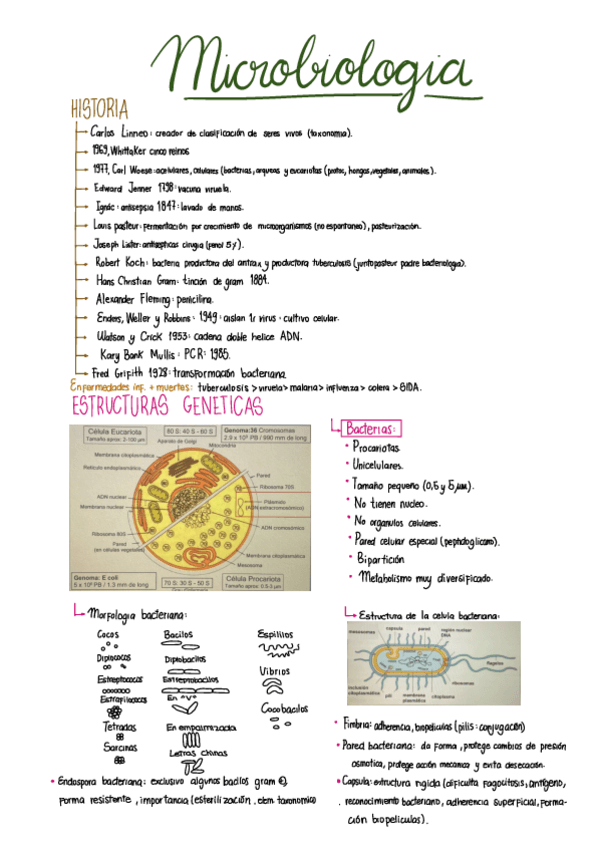 Microbiologia
HISTORIA
Carlos Linneo: creador de clasificación de seres vivos (taxonomia).
1969, Whittaker cinco reinos
1977, Carl Woese: acelulares, celulares (bacterias, arqueas y eucariotas (protos, hongos, vegetales, animales).
Edward Jenner 1798: vacuna viruela.
Ignác: antisepsia 1847: lavado de manos.
Louis pasteur: fermentación por crecimiento de microorganismos (no espontaneo), pasteurización.
Joseph Lister: antisepticas cirugia (fenol 5%).
Robert Koch: bacteria productora del antrax y productora tuberculosis (junto pasteur padre bacteriologia).
Hans Christian Gram: tinción de gram 1884.
Alexander Fleming: penicilina.
Enders, Weller y Robbins: 1949: aislan 1r virus - cultivo celular.
Watson y Crick 1953: cadena doble helice ADN.
Kary Bank Mullis: PCR: 1985.
Fred Grifith 1928: transformación bacteriana
Enfermedades inf. + muertes: tuberculosis > viruela > malaria > influenza > colera > SIDA.
ESTRUCTURAS GENETICAS
Célula Eucariota
Tamaño aprox: 2-100 µm
80 S: 40 S - 60 S
Genoma:36 Cromosomas
2.9 x 10⁹ PB / 990 mm de long
Aparato de Golgi
Mitocondria
Membrana citoplasmática
Retículo endoplasmático
Pared
Ribosoma 70S
ADN nuclear
Membrana nuclear
Plásmido
(ADN extracromosómico)
Ribosoma 80S
ADN cromosómico
Pared
(en células vegetales)
Membrana citoplasmática
Mesosoma
Genoma: E coli
5 x 10⁶ PB / 1.3 mm de long
70 S: 30 S - 50 S
Célula Procariota
Tamaño aprox: 0.5-3 µm
Bacterias:
• Procariotas
• Unicelulares.
• Tamaño pequeño (0,5 y 5 µm).
• No tienen nucleo.
• No organulos celulares.
• Pared celular especial (peptidoglicano).
• Bipartición
• Metabolismo muy diversificado.
Morfologia bacteriana:
Cocos
Bacilos
Espirilos
Diplococos
Diplobacilos
Estreptococos
Estreptobacilos
Vibrios
Estafilococos
En "V"
Cocobacilos
Tetradas
En empalizada
Sarcinas
Letras chinas
• Endospora bacteriana: exclusivo algunos bacilos gram ⊕,
forma resistente, importancia (esterilización, elem taxonomico
Estructura de la celula bacteriana:
mesosomas
capsula
pared
región nuclear
DNA
flagelos
ribosomas
inclusión
citoplasmática
pili
membrana
plasmática
citoplasma
• Fimbria: adherencia, biopeliculas (pilis: conjugación)
• Pared bacteriana: da forma, protege cambios de presión
osmotica, protege acción mecanica y evita desecación.
• Capsula: estructura rigida (dificulta fagocitosis, antigeno,
reconocimiento bacteriano, adherencia superficial, forma-
ción biopeliculas).